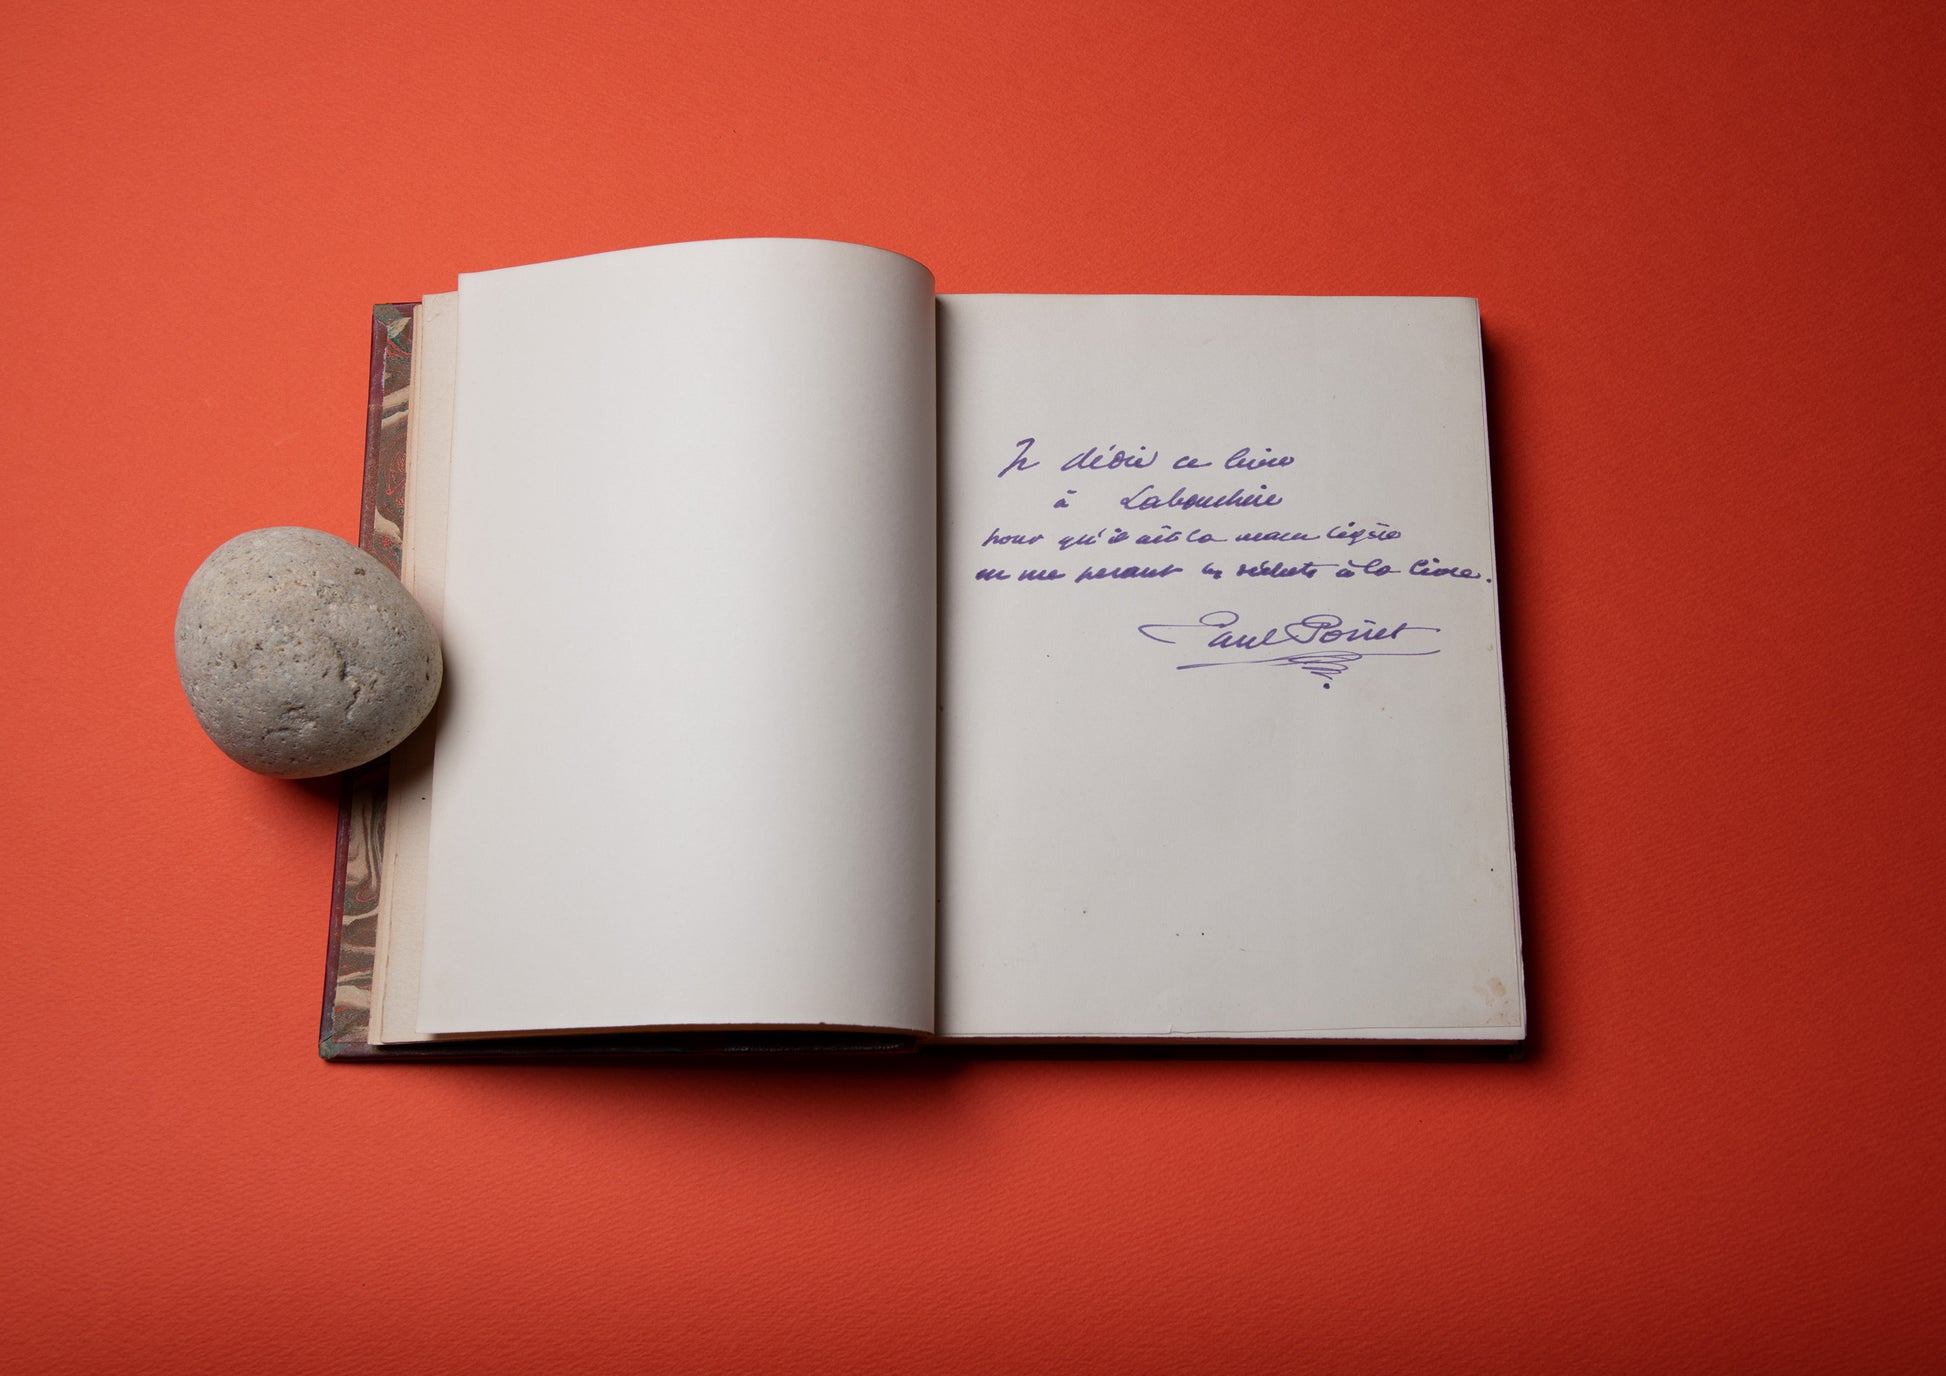 Je dédie ce livre
à Labouchère
pour qu'il ait la main légère
en me pesant les déchets à la livre.
Paul Poiret